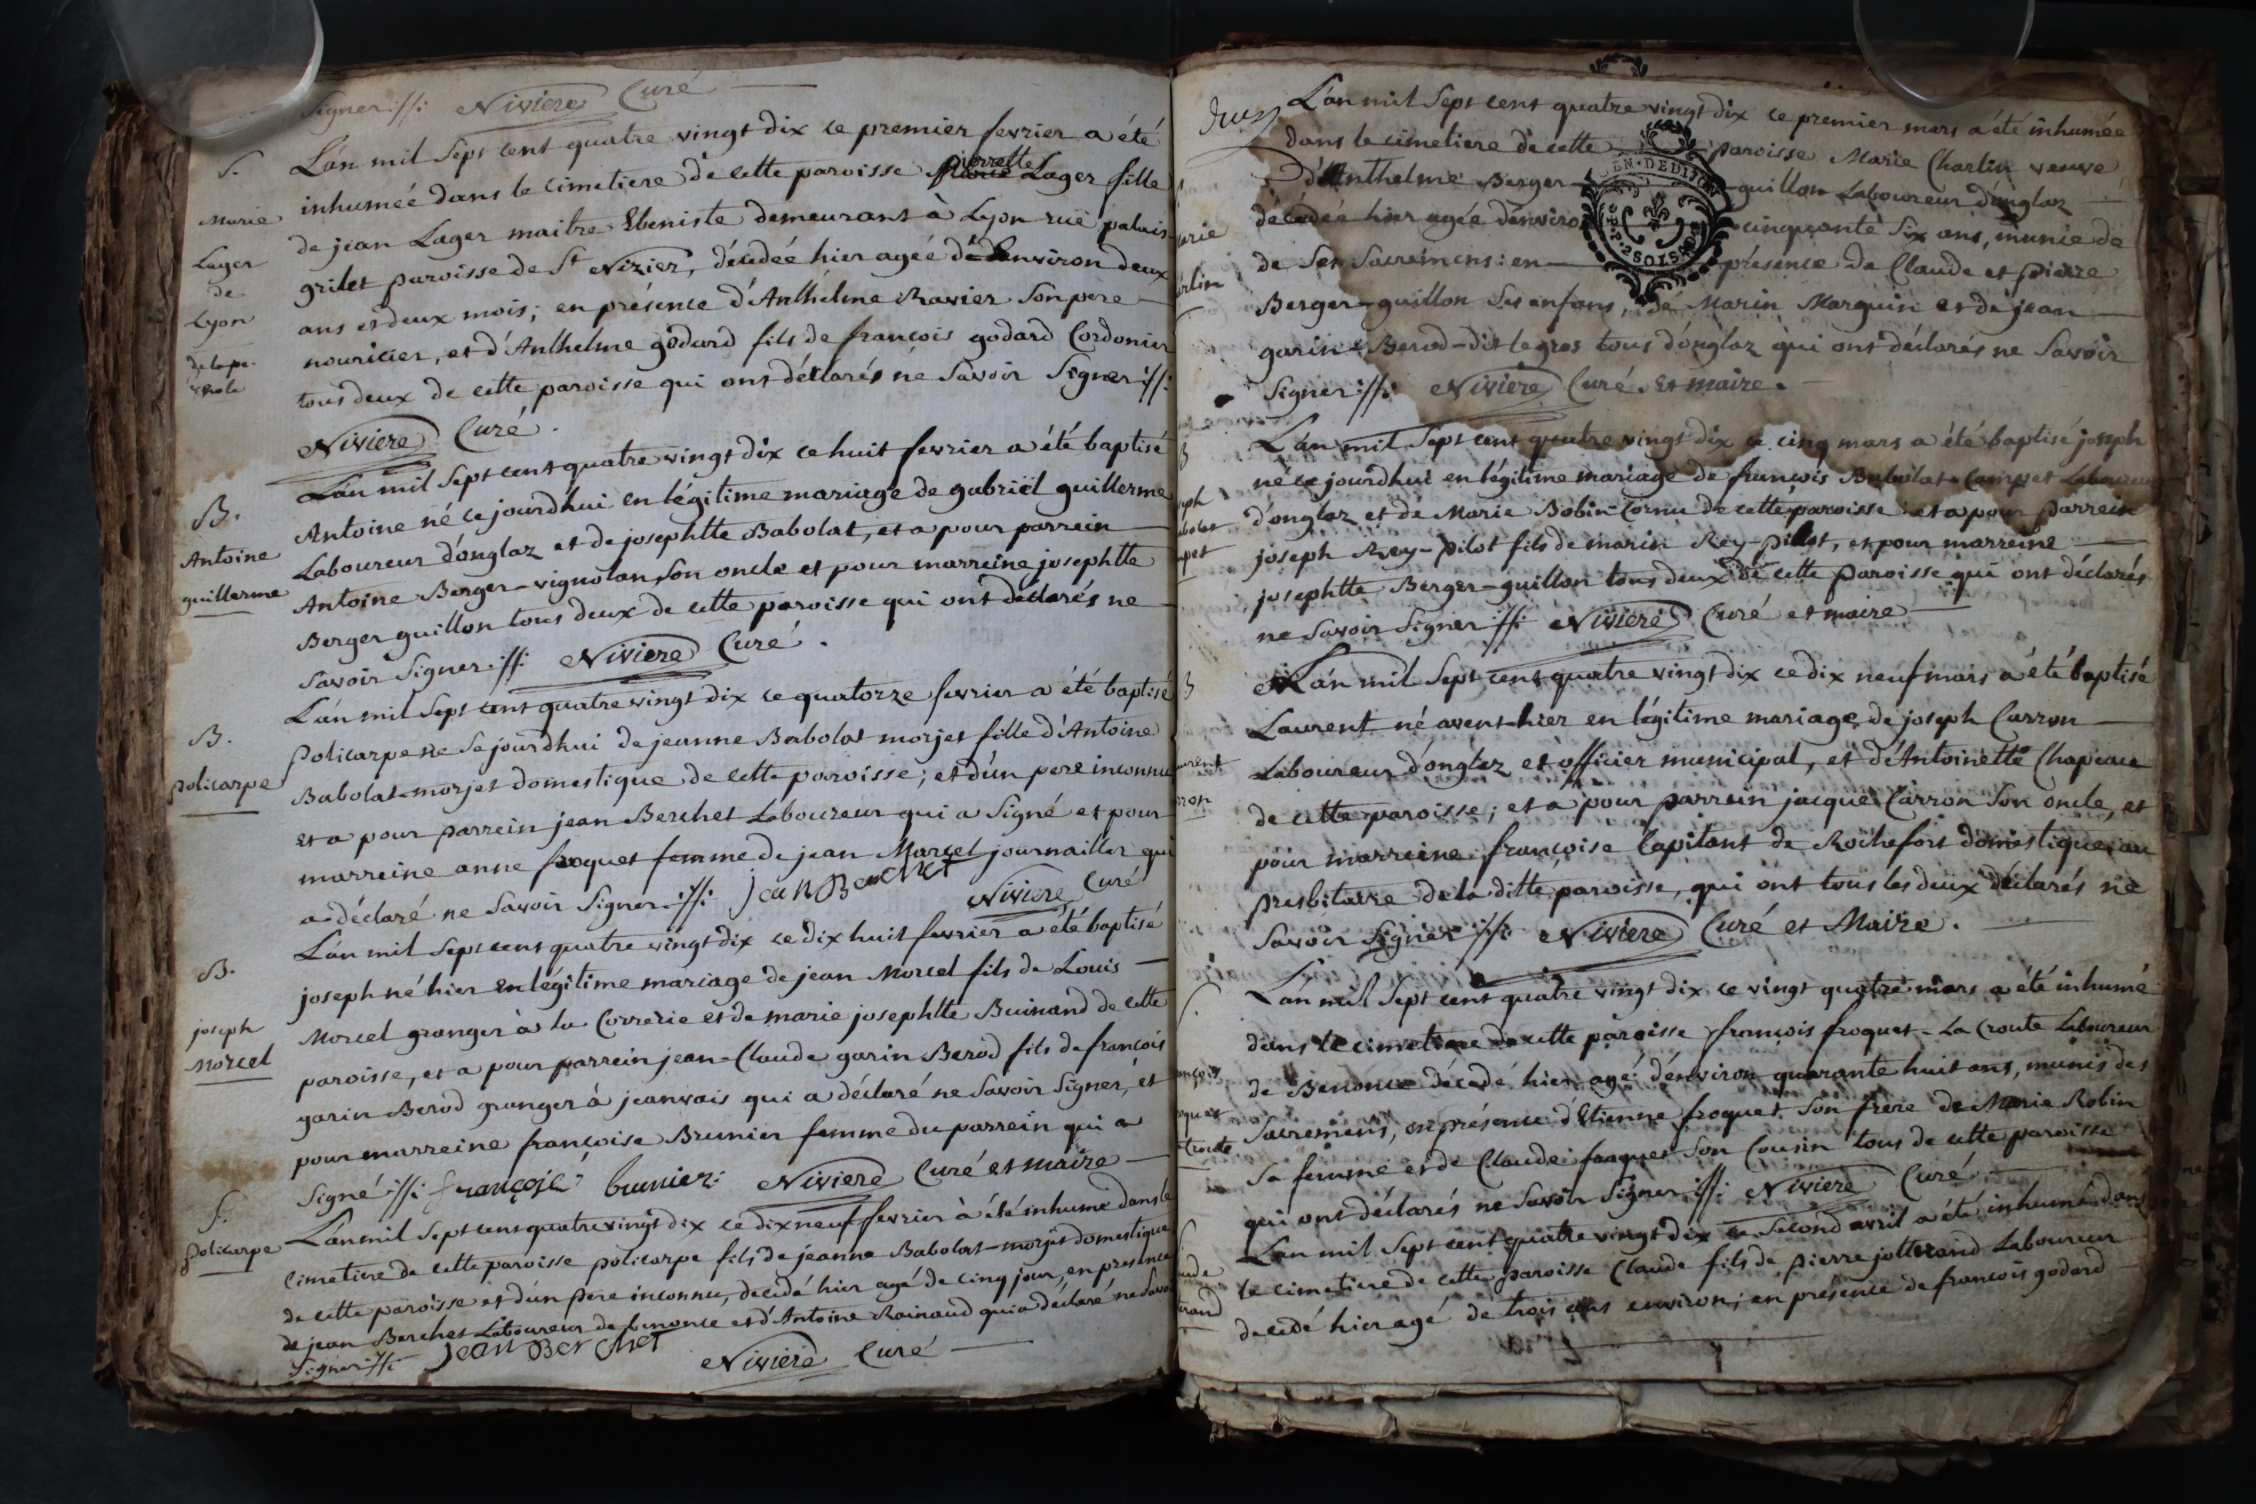 Signer :/: Niviere Curé
S.
L'an mil sept cent quatre vingt dix ce premier fevrier a été
inhumée dans le cimetiere de cette paroisse pierrette Lager fille
Marie
Lager
de
Lyon
de Jean Lager maitre Ebeniste demeurant à Lyon rue palais
grilet paroisse de St Nizier, décedée hier agée d'environ deux
ans et deux mois; en présence d'Anthelme Ravier son pere
nouricier, et d'Anthelme godard fils de francois godard Cordonier
tous deux de cette paroisse qui ont déclarés ne Savoir Signer :/:
Niviere Curé.
B.
Antoine
guillerme
L'an mil Sept cent quatre vingt dix ce huit fevrier a été baptisé
Antoine né ce jourd'hui en légitime mariage de gabriël guillerme
Laboureur d'onglaz et de josephtte Babolat, et a pour parrein
Antoine Berger-vignolan son oncle et pour marreine josephtte
Berger guillon tous deux de cette paroisse qui ont déclarés ne
Savoir Signer :/: Niviere Curé.
B.
policarpe
L'an mil Sept cent quatre vingt dix ce quatorze fevrier a été baptisé
Policarpe né Se jourdhui de jeanne Babolat morjet fille d'Antoine
Babolat-morjet domestique de cette paroisse; et d'un pere inconnu
et a pour parrein jean Berchet Laboureur qui a Signé et pour
marreine anne froquet femme de jean Marcel journaillier qui
a déclaré ne Savoir Signer :/: jean Berchet Niviere Curé
B.
joseph
Morcel
L'an mil Sept cent quatre vingt dix ce dix huit fevrier a été baptisé
joseph né hier en légitime mariage de jean Morcel fils de Louis
Morcel granger à la Correrie et de marie josephtte Buinand de cette
paroisse, et a pour parrein jean-Claude garin Berod fils de francois
garin Berod granger à jeanvais qui a déclaré ne Savoir Signer, et
pour marreine françoise Brunier femme du parrein qui a
Signé :/: françoise brunier: Niviere Curé et maire
S.
policarpe
L'an mil Sept cent quatre vingt dix ce dix neuf fevrier à été inhumé dans le
Cimetiere de cette paroisse policarpe fils de jeanne Babolat-morjet domestique
de cette paroisse et d'un pere inconnu, decedé hier agé de cinq jour, en presence
de jean Berchet Laboureur de benonce et d'Antoine Rainaud qui a déclaré ne Savoir
Signer :/: jean Berchet Niviere Curé
L'an mil Sept cent quatre vingt dix ce premier mars a été inhumée
dans le cimetiere de cette paroisse Marie Charlin veuve
d'Anthelme Berger guillon Laboureur d'onglaz
décedée hier agée d'environ cinquante Six ans, munie de
de Ses Sacremens: en présence de Claude et pierre
Berger-guillon Ses enfans, de Marin Marguin et de jean
garin-Berod-dit legros tous d'onglaz qui ont déclarés ne Savoir
Signer :/: Niviere Curé. et maire.
B
L'an mil Sept cent quatre vingt dix ce cinq mars a été baptisé joseph
né ce jourdhui en légitime mariage de francois Babolat-Campet Laboureur
d'onglaz et de Marie Bobin-Cornu de cette paroisse et a pour parrein
joseph Rey-pilot fils de marin Rey-pilot, et pour marreine
josephtte Berger-guillon tous deux de cette paroisse qui ont déclarés
ne Savoir Signer :/: Niviere Curé et maire
B
L'an mil Sept cent quatre vingt dix ce dix neuf mars a été baptisé
Laurent né avent-hier en légitime mariage de joseph Carron
Laboureur d'onglaz et officier municipal, et d'Antoinette Chapeau
de cette paroisse; et a pour parrein jacque Carron son oncle, et
pour marreine françoise Capitant de Rochefort domestique au
presbitaire de la ditte paroisse, qui ont tous les deux déclarés ne
Savoir Signer :/: Niviere Curé et Maire.
S.
L'an mil Sept cent quatre vingt dix ce vingt quatre mars a été inhumé
dans le cimetiere de cette paroisse francois froquet-La Croute Laboureur
de Benonce décedé hier agé d'environ quarante huit ans, munis des
Sacremens, en présence d'Etienne froquet Son frere de Marie Robin
Sa femme et de Claude froquet Son Cousin tous de cette paroisse
qui ont déclarés ne Savoir Signer :/: Niviere Curé
L'an mil Sept cent quatre vingt dix ce Second avril a été inhumé dans
le cimetiere de cette paroisse Claude fils de pierre jotterand Laboureur
decedé hier agé de trois ans environ; en présence de francois godard